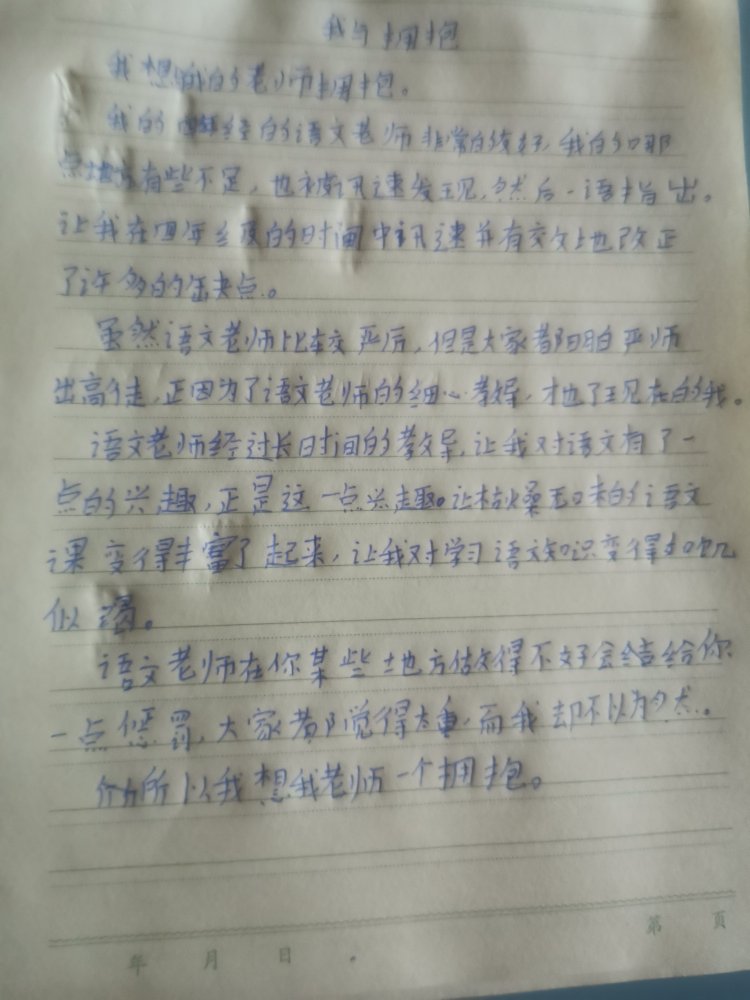 我与拥抱
我想的老师拥抱。
我的曾经的语文老师非常的好,我的如那
点地方有些不足,也被讯速发现,然后一语指出。
让我在四年级的时间中讯速并有效地改正
了许多的缺点。
虽然语文老师比较严厉,但是大家都明白严师
出高徒,正因为了语文老师的细心教导,才有了现在的我。
语文老师经过长时间的教导,让我对语文有了一
点的兴趣,正是这一点兴趣。让枯燥无味的语文
课变得丰富了起来,让我对学习语文知识变得如饥
似渴。
语文老师在你某些地方做得不好会给你
一点惩罚,大家都觉得太重,而我却不以为然。
所以我想我老师一个拥抱。
第 页
年 月 日